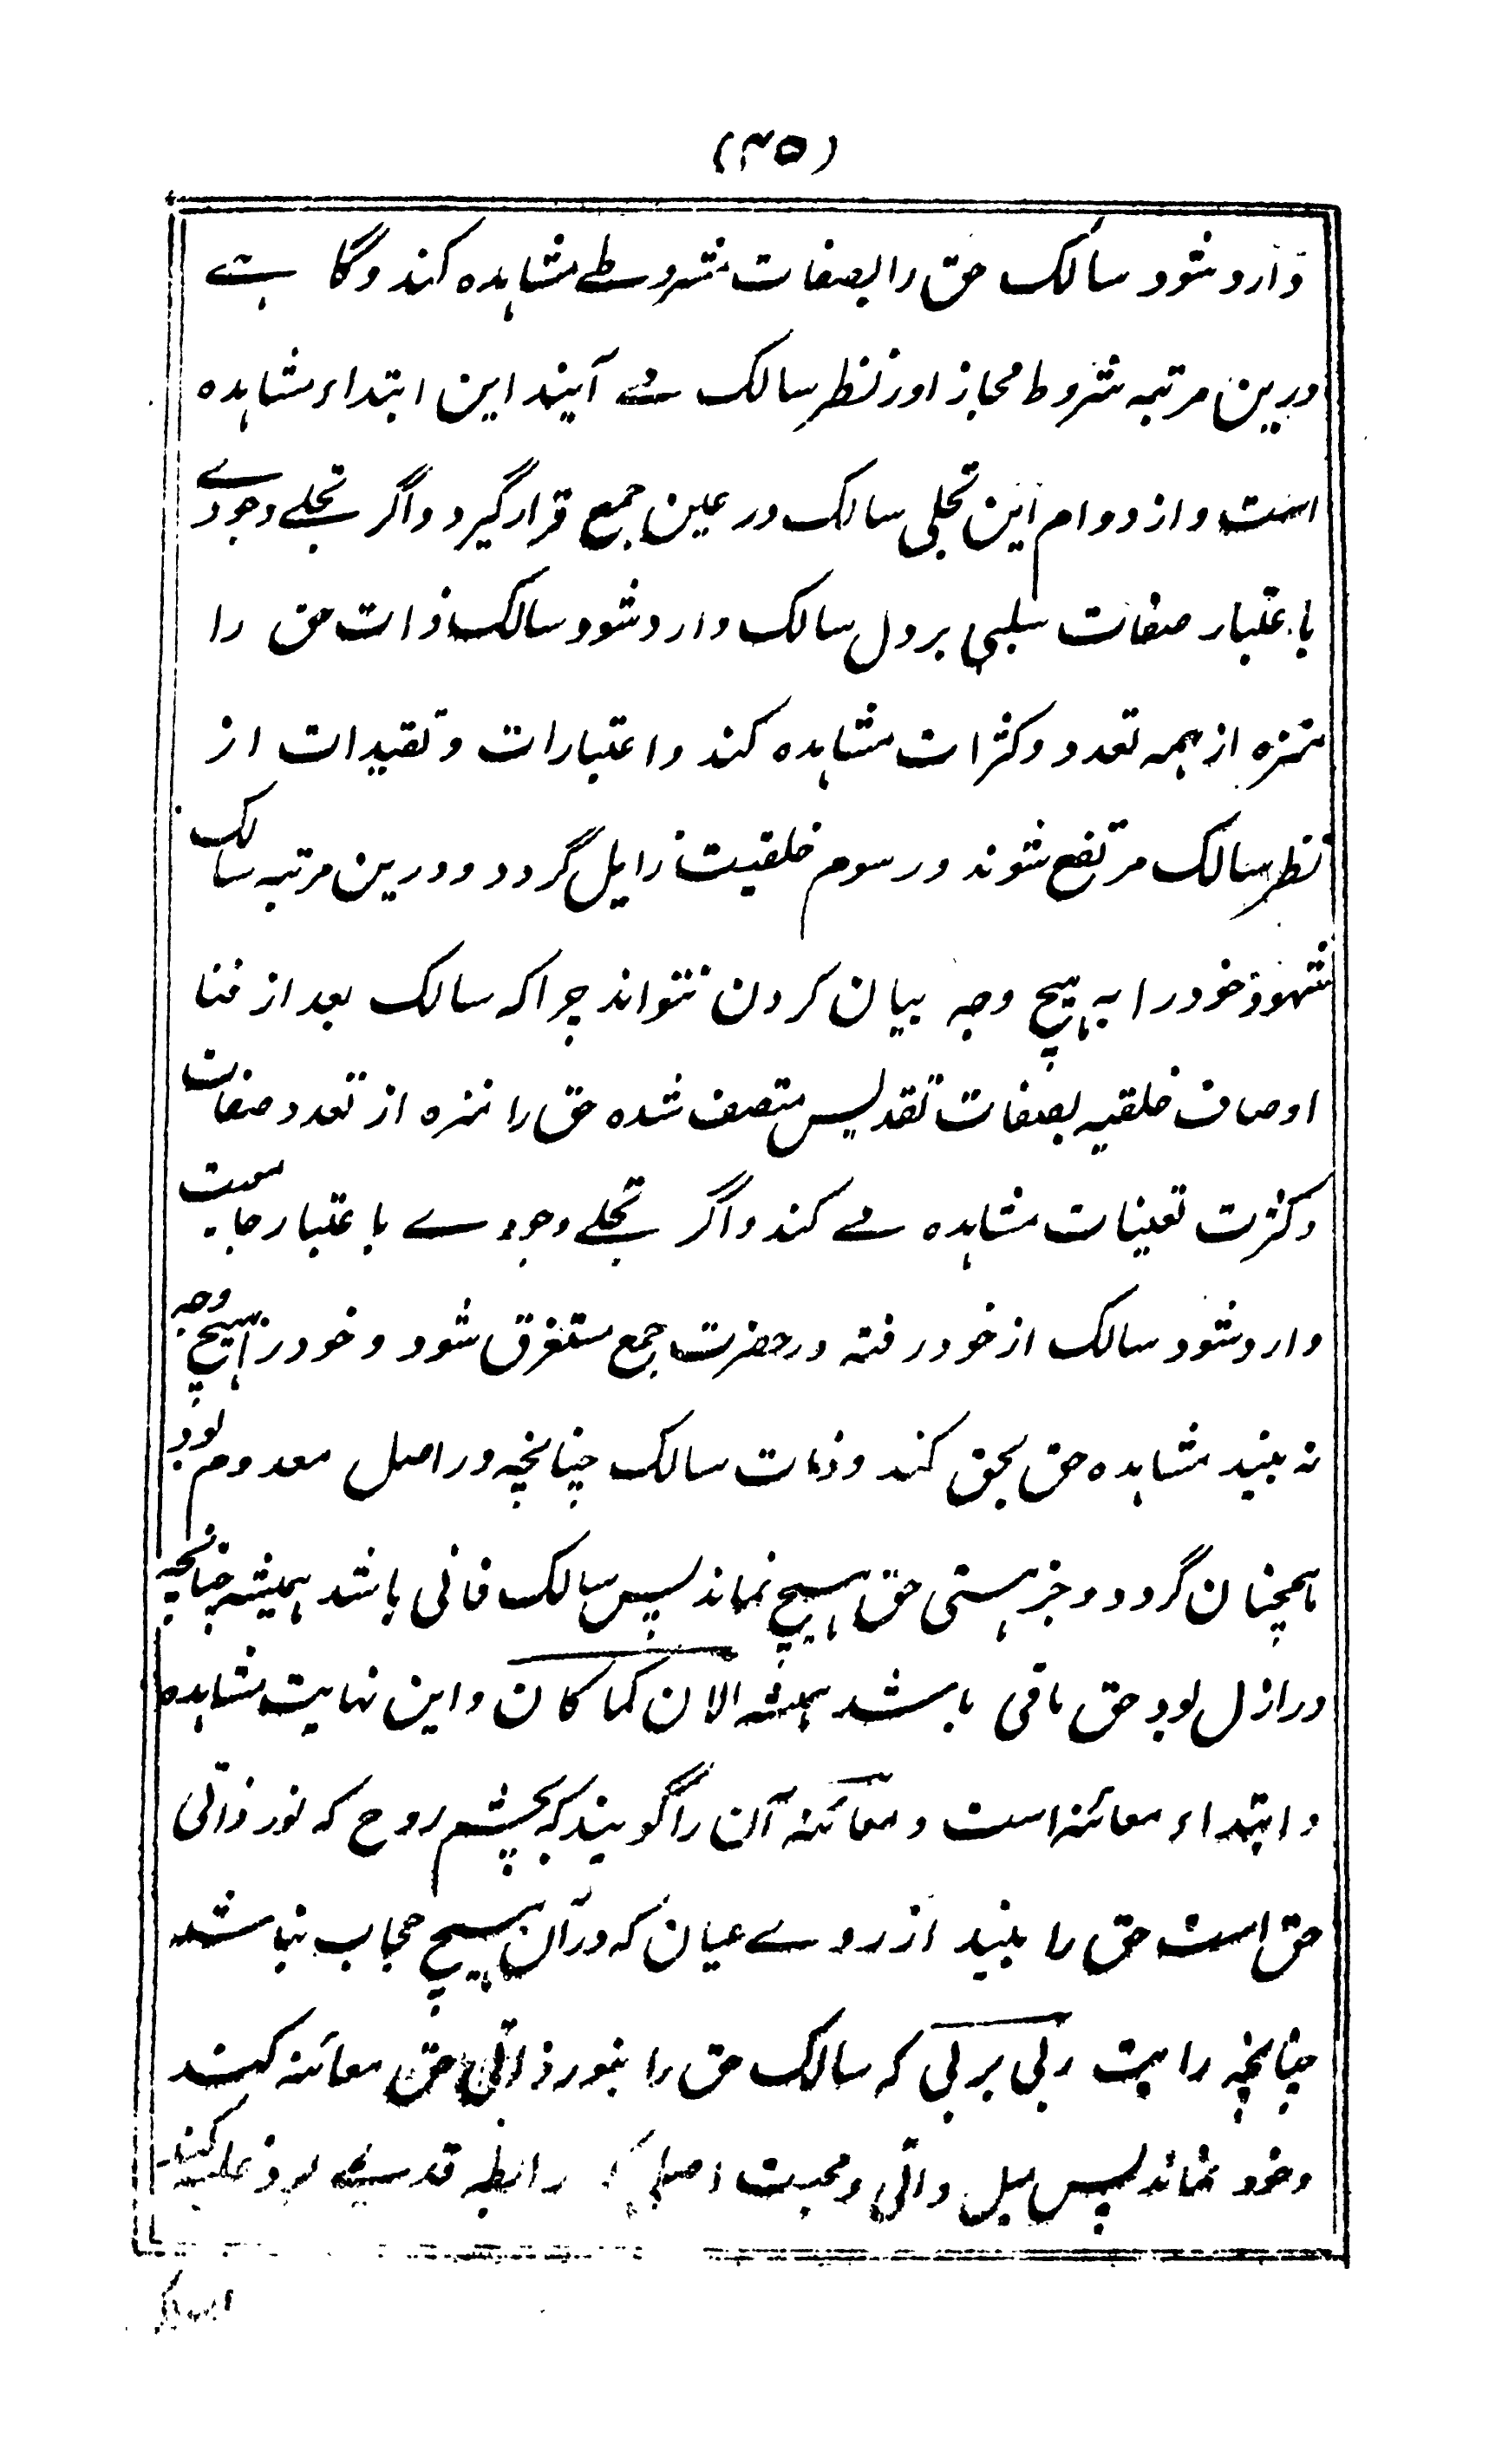 (۴۵)
وارد شود سالک حق را بصفات شروطے مشاہدہ کند وگاہے
درین مرتبہ شروط مجاز اور نظر سالک مے آیند این ابتداء مشاہدہ
است و از دوام این تجلی سالک در عین جمع قرار گیرد و اگر تجلے وجودے
باعتبار صفات سلبی بر دل سالک وارد شود سالک ذات حق را
منزہ از ہمہ تعدد و کثرات مشاہدہ کند و اعتبارات و تقیدات از
نظر سالک مرتفع شوند و رسوم خلقیت زایل گردد و درین مرتبہ سالک
شہود خود را بہ ہیچ وجہ بیان کردن نتواند چرا کہ سالک بعد از فنا
اوصاف خلقیہ بصفات تقدیس متصف شدہ حق را منزہ از تعدد صفات
و کثرت تعینات مشاہدہ مے کند و اگر تجلے وجودے باعتبار جامعیت
وارد شود سالک از خود رفتہ در حضرت جمع مستغرق شود و خود را بہیچ وجہ
نہ بیند مشاہدہ حق بحق کند و ذات سالک چنانچہ در اصل معدوم بود
ہمچنان گردد و جز ہستی حق ہیچ نماند پس سالک فانی باشد ہمیشہ چنانچہ
در ازل بود حق باقی باشد ہمیشہ الآن کما کان و این نہایت مشاہدہ
و ابتداء معائنہ است و معائنہ آن را گویند کہ بچشم روح کہ نور ذاتی
حق است حق را بیند از روے عیان کہ در آن ہیچ حجاب نباشد
چنانچہ رایت ربی بربی کہ سالک حق را بنور ذاتی حق معائنہ کند
و خود نماند پس میل ذاتی و محبت اصلی رابطہ قدسیہ